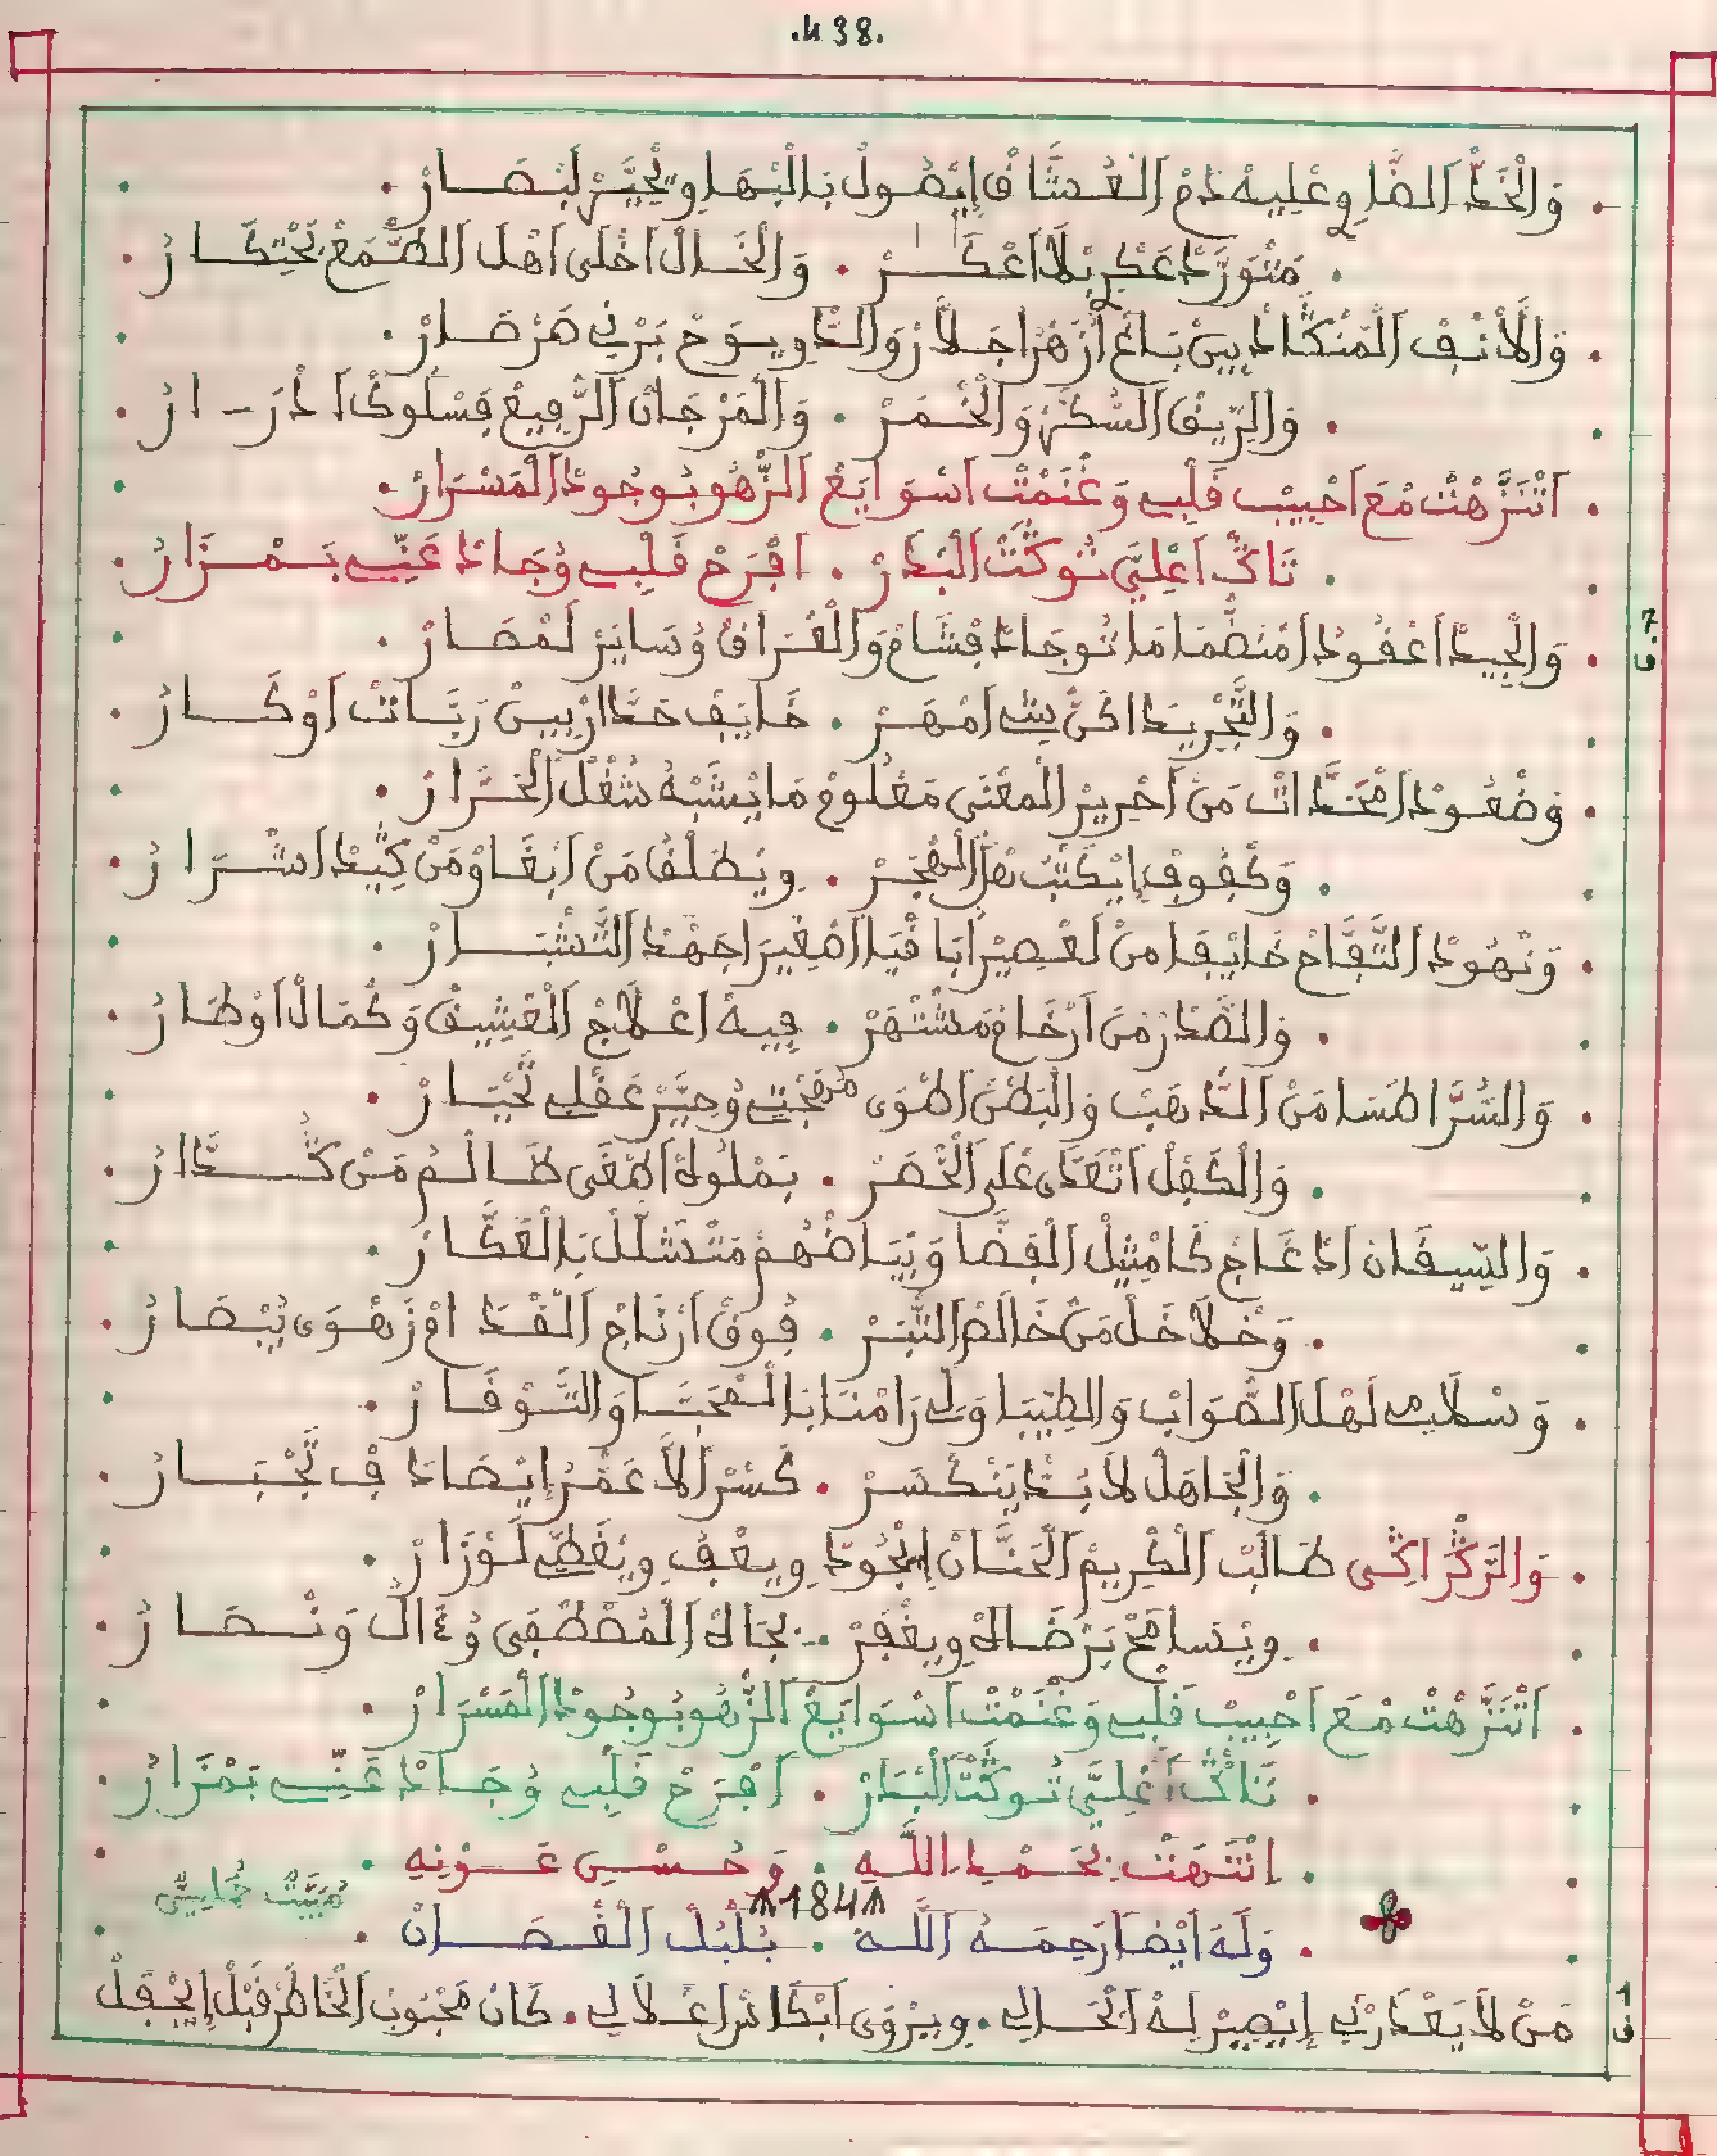 .438.
. وَالْخَدّْ الضَّاوِي عْلِيهْ دَمْ الْعُشَّاقْ إِيْصُولْ بَالْبْهَا وِيْحَيَّرْ لَبْصَارْ .
. مَتْوَرَّدْ عَكْرِي بْلَا اَعْكَرْ . وَالْخَالْ اَخْلَى اَهْلْ الطّْمَعْ تَحْتِكَارْ .
. وَالْأَنْفْ الْمَنْكَادْ بِينْ بَاعْ اَزْهَرْ اجَلَّارْ وَالنَّدْ وِيبَوَّحْ بَرْنِي صَرْصَارْ .
. وَالرِّيقْ السُّكَّرْ وَالْخْمَرْ . وَالْمَرْجَانْ الرّْفِيعْ فِسْلُوكْ اَدْرَارْ .
. اَتْنَزَّهْتْ مْعَ اَحْبِيبْ قَلْبِي وَغْنَمْتْ اَسْوَايَعْ الزّْهُو بُوجُودْ الْمَسْرَارْ .
. تَاكْ اَعْلِيَّ تُوكْتْ الْبْدَرْ . اَفْرَحْ قَلْبِي وُجَادْ عَنِّي بَمْزَارْ .
7 ق
. وَالْجِيدْ اَعْقُودْ اَمْنَضّْمَا مَا تُوجَادْ فِشَامْ وَالْعْرَاقْ وُسَايَرْ لَمْصَارْ .
. وَالتَّجْرِيدَا كَنّْ بِتْ اَمْهَرْ . خَايَفْ حَدَّارْ بِينْ رَبَّاتْ اَوْكَارْ .
. وَضْعُودْ اَمْخَدَّاتْ مَنْ اَحْرِيرْ الْمَعْنَى مَعْلُومْ مَا يْشَبْهُ شُغْلْ الْخَرَّازْ .
. وَكْفُوفْ إِيْكَتْبُ الْهْجَرْ . وِيطَلْقُ مَنْ اَبْغَاوْ مَنْ كِيدْ اَشْرَارْ .
. وَنْهُودْ التَّفَّاحْ خَايْفَا مَنْ لَعْصِيرْ اَبَاقْيَا اَصْغِيرَا جَهْدْ التَّشْبَارْ .
. وَالصّْدَرْ مَنْ اَرْخَامْ مَشْتْهَرْ . فِيهْ اَعْلَاجْ الْعْشِيقْ وَكْمَالْ اَوْطَارْ .
. وَالسُّرَّا طَسَا مَنْ الذّْهَبْ وَالْبَطْنْ اَطْوَى مُهْجْتِي وُحَيَّرْ عَقْلِي تَحْيَارْ .
. وَالْكْفَلْ اَتْعَدَّى عْلَى الْخْصَرْ . بَمْلُوكْ اَطْغَى ظَالَمْ مَنْ كُدَّارْ .
. وَالسِّيقَانْ اَدْعَاجْ كَا مْثِيلْ الْفِضَّا وَبْيَاضْهُمْ مَتْشَلَّلْ بَالْعَكَّارْ .
. وَخْلَاخَلْ مَنْ خَالَصْ التّْبَرْ . فُوقْ اَرْتَاجْ الْقْدَامْ زَهْوَى نْبْصَارْ .
. وَسْلَامِي لَهْلْ الصّْوَابْ وَالطِّيبَا وَلِّي رَامْنَا بَالْمْحَبَّا وَالتَّوْقَارْ .
. وَالْجَاهَلْ لَابُدّْ يَتْكْسَرْ . كَسْرْ الَّا عَمْرُ إِيْصَادَفْ تَجْبَارْ .
. وَالرَّكْرَاكِي طَالَبْ الْكْرِيمْ الْحَنَّانْ إِيْجُودْ وِيعْفُ وِيْغَطِّي لَوْزَارْ .
. وِيْسَامَحْ بَرْضَاهْ وِيغْفَرْ . بْجَاهْ الْمُصْطْفَى وُءَالُ وَنْصَارْ .
. اَتْنَزَّهْتْ مْعَ اَحْبِيبْ قَلْبِي وَغْنَمْتْ اَسْوَايَعْ الزّْهُو بُوجُودْ الْمَسْرَارْ .
. تَاكْ اَعْلِيَّ تُوكْتْ الْبْدَرْ . اَفْرَحْ قَلْبِي وُجَادْ عَنِّي بَمْزَارْ .
. اِنْتَهَتْ بِحَمْدِ اللَّهِ . وَحُسْنِ عَوْنِهِ .
184 مْبَيَّتْ خُمَاسِي
. وَلَهُ اَيْضًا رَحِمَهُ اللَّهُ . بُلْبُلْ الْقْصَانْ .
1 ق
مَنْ لَا يَعْدَرْنِي إِيْصِيرْ لِهْ اَلْحَالِي . وِيرْوَى اَبْكَاسْ اَعْلَالِي . كَانْ مَحْبُوبْ الْخَاطَرْ قْبَلْ إِيْجْفَلْ